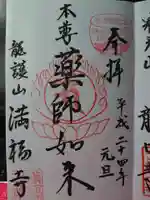 奉拝
平成二十四年
元旦
本尊
薬師如来
龍護山
満福寺